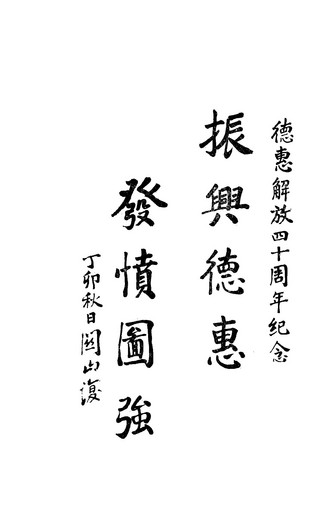 德惠解放四十周年纪念
振興德惠
發憤圖強
丁卯秋日關山復